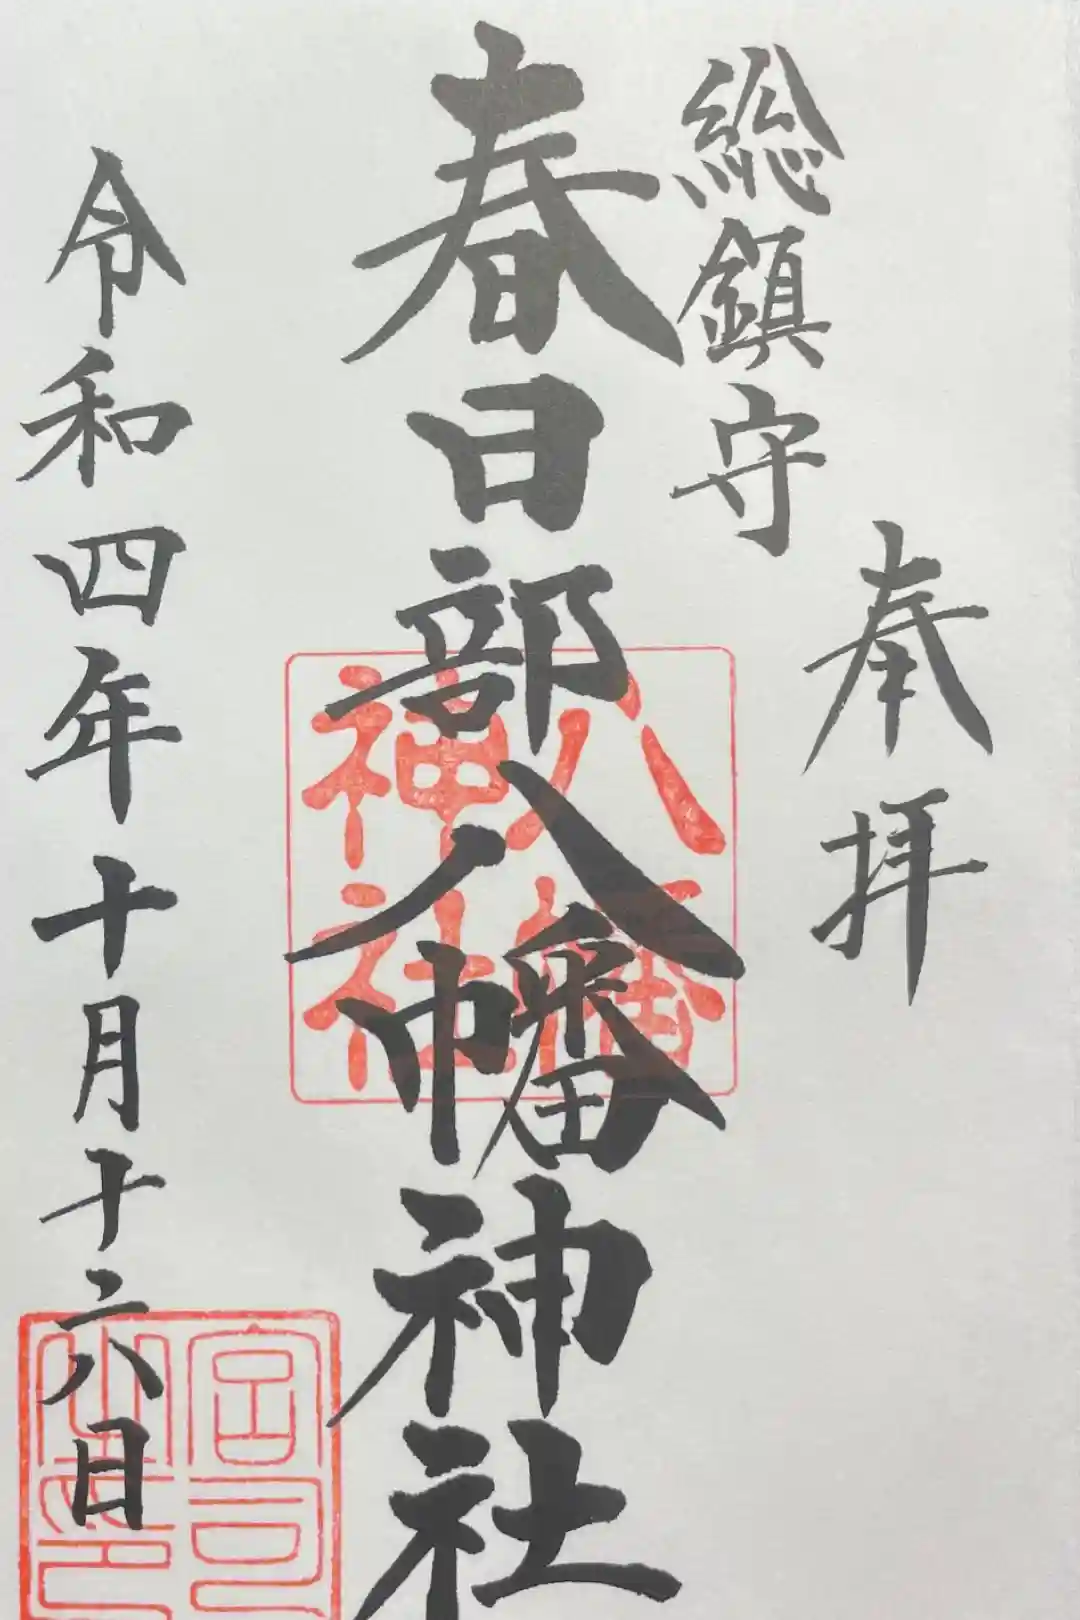 奉拝
総鎮守
春日部八幡神社
八幡
神社
令和四年十月十六日
宮司
之印